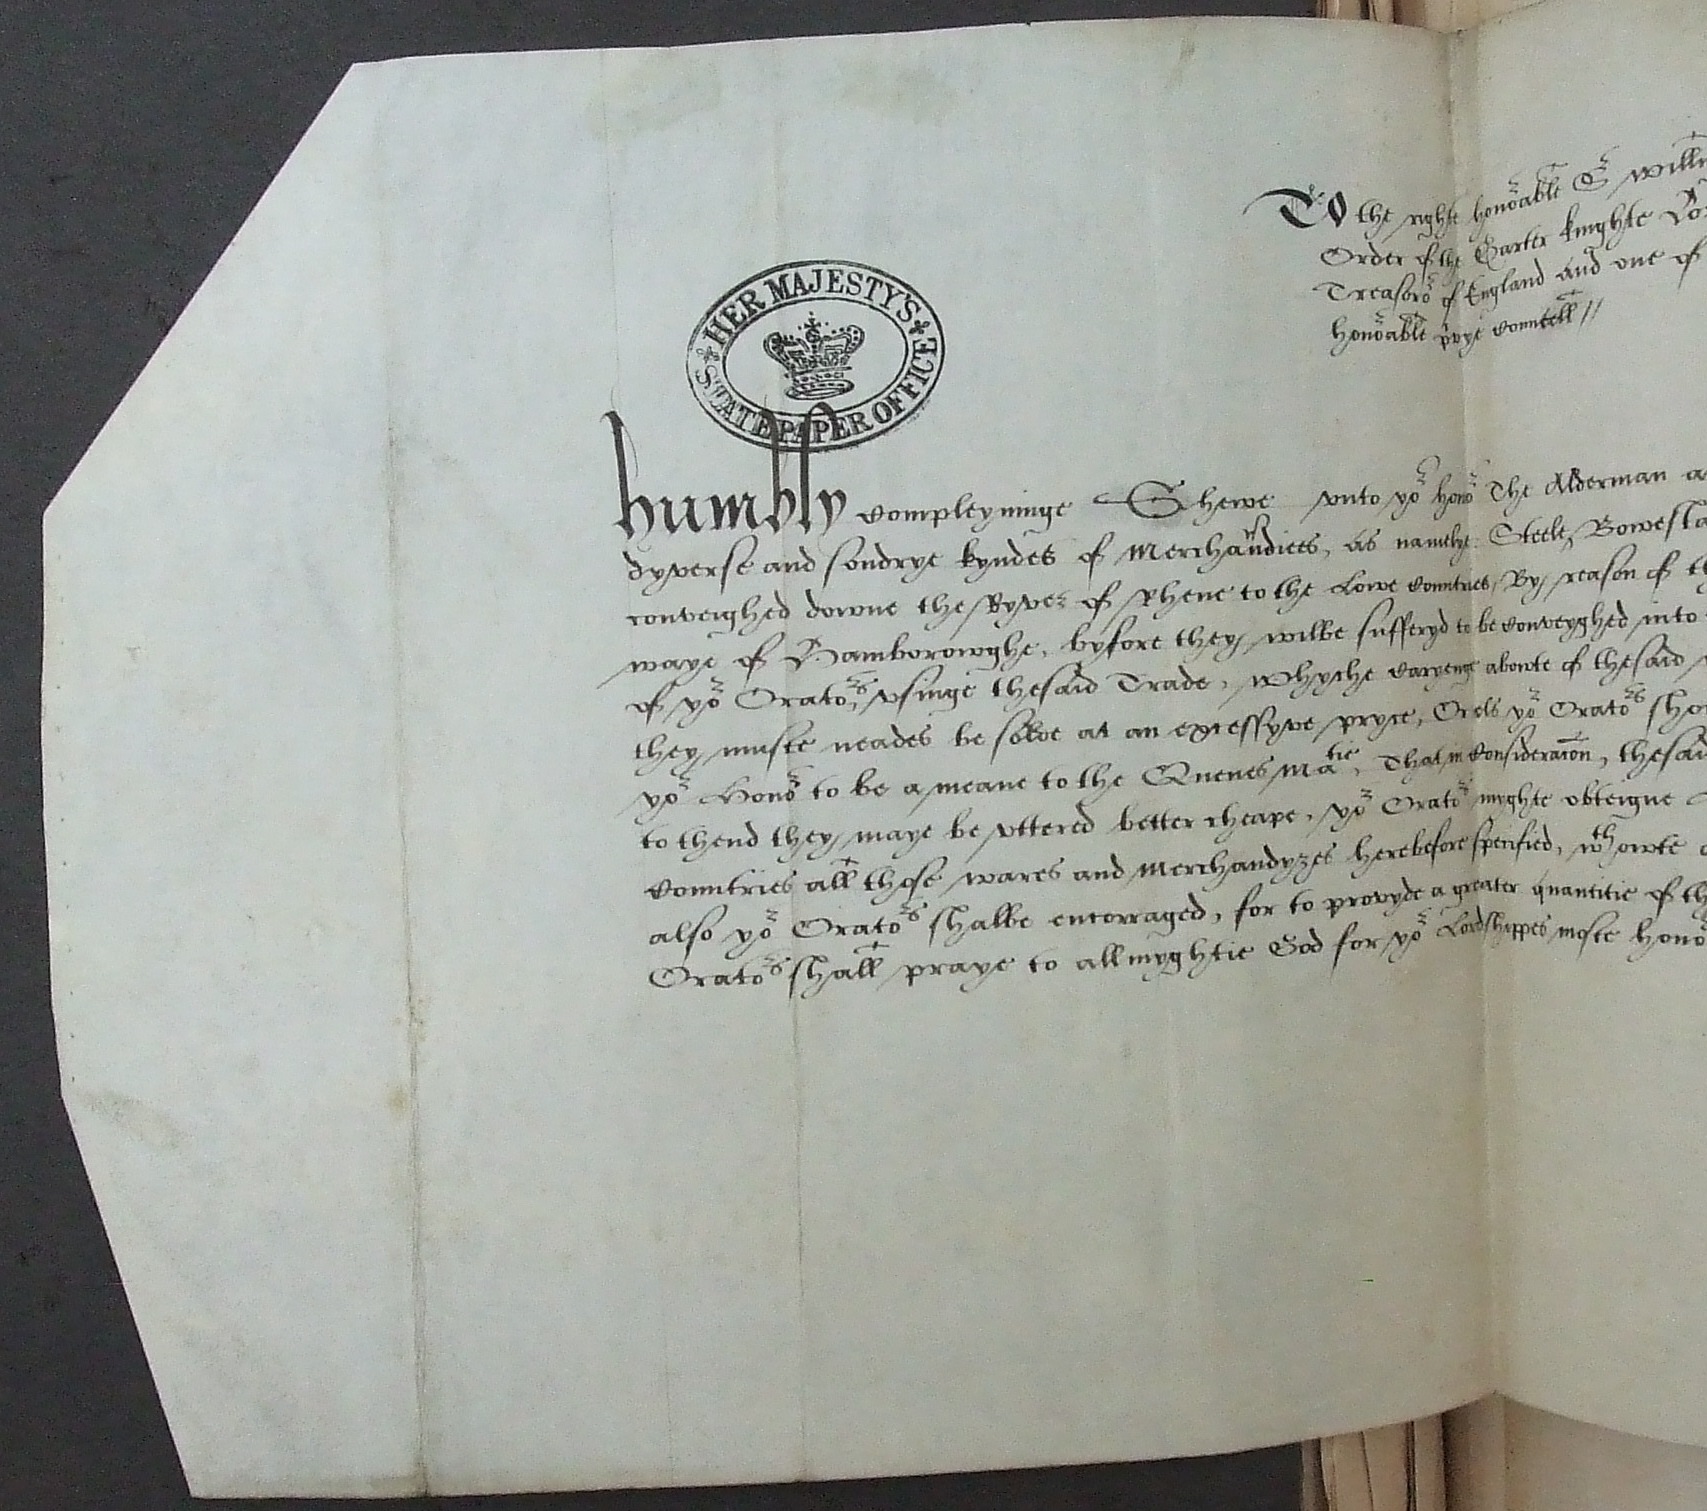 To the right honoable Sr willm
Order of the Garter knighte Lo
Treasoro of England and one of
honoable pvye Counsell //
HER MAJESTY'S
STATE PAPER OFFICE
humbly Compleyninge Shewe vnto yor honor The Alderman a
dyverse and sondrye kyndes of Merchaundices, As namelye Steele, Bowesta
conveighed downe the Ryver of Rhene to the Lowe Countries, By reason of th
waye of Hamborowghe, byfore they wilbe sufferyd to be Conveyghed into
of yor Orators, vsinge thesaid Trade, Whyche Caryenge aboute of thesaid
they muste neades be solde at an excessyve pryce, Orels yor Orators sho
yor Honor to be a meane to the Quenes Matie, That in Consideracon, thesaid
to thend they maye be vttered better cheape, yor Orators myghte obteigne
Countries all those wares and Merchandyzes herebefore specified, wthowte
also yor Orators shalbe encorraged, for to provyde a greater quantitie of th
Orators shall praye to allmyghtie God for yor Lordshippes moste Honor